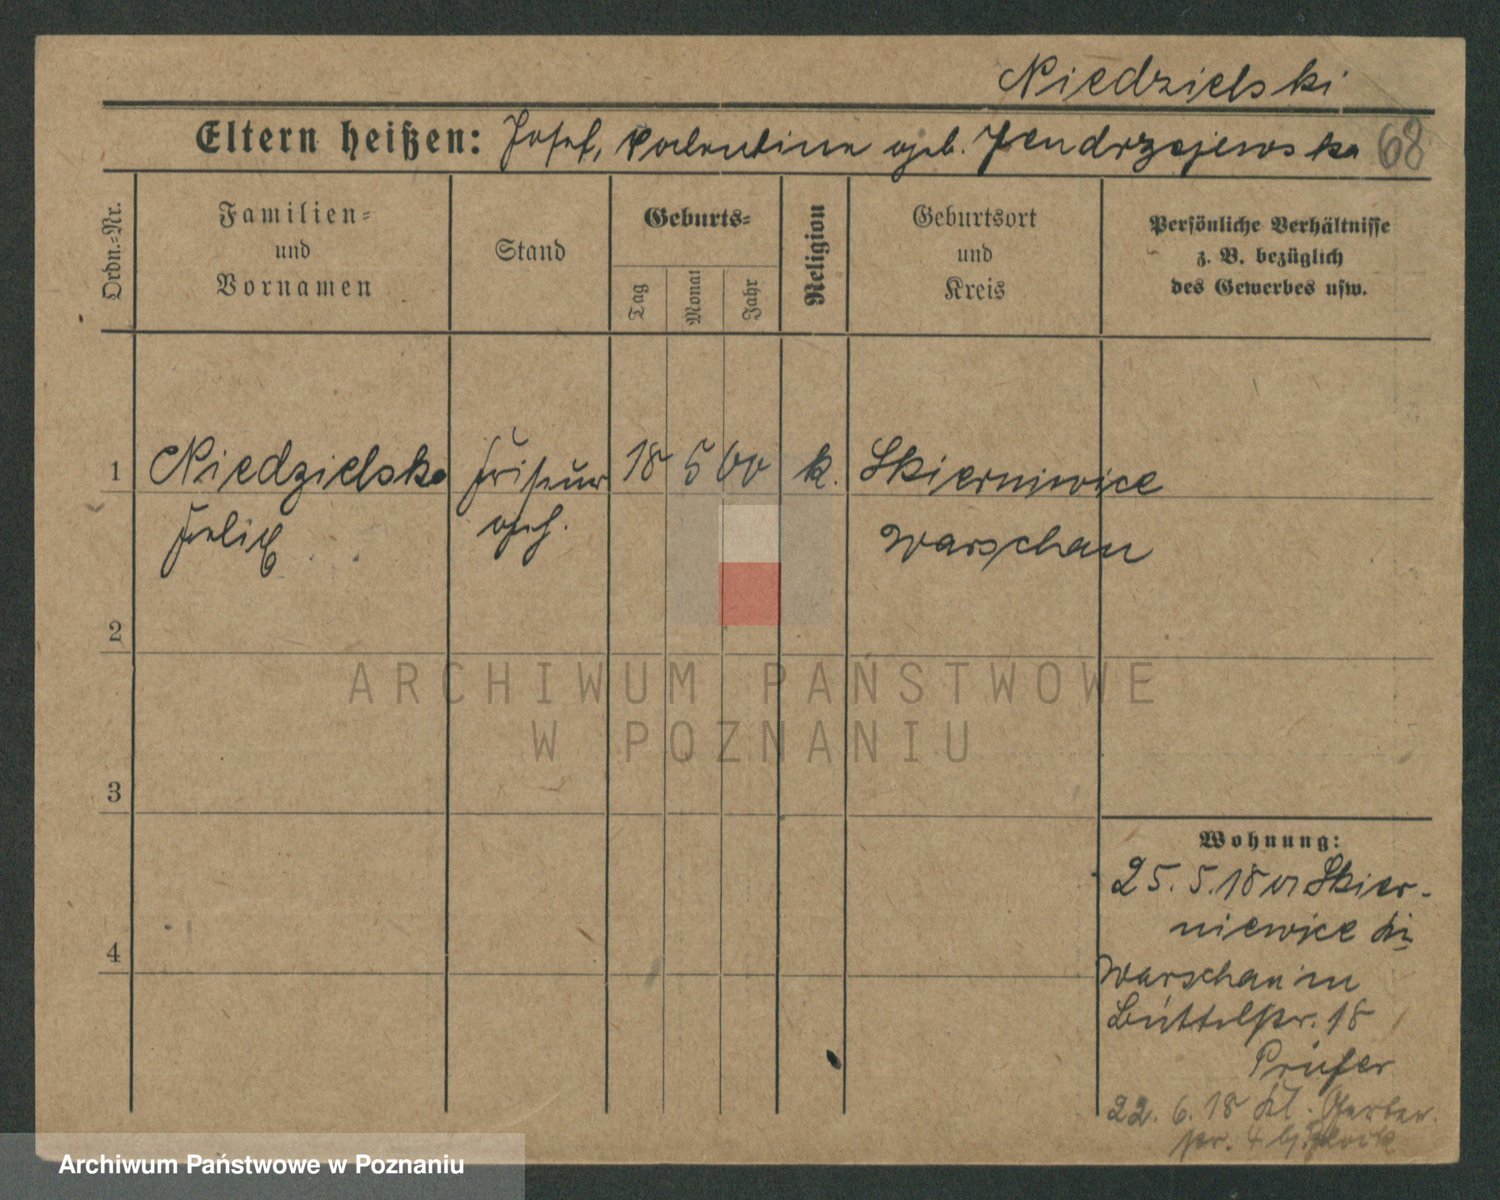 Niedzielski
Eltern heißen: Josef, Valentine geb. Jendrzejewska 68
Ordn.=Nr.
Familien=
und
Vornamen
Stand
Geburts=
Tag
Monat
Jahr
Religion
Geburtsort
und
Kreis
Persönliche Verhältnisse
z. B. bezüglich
des Gewerbes usw.
1 Niedzielski Friseur 18 5 00 k. Skierniwice
Felix geh. Warschau
2
3
4
Wohnung:
25. 5. 18 Skier-
niewice
Warschau in
Büttelstr. 18
Prüfer
22. 6. 18 Kl. Gerber
str. 4
ARCHIWUM PAŃSTWOWE
W POZNANIU
Archiwum Państwowe w Poznaniu